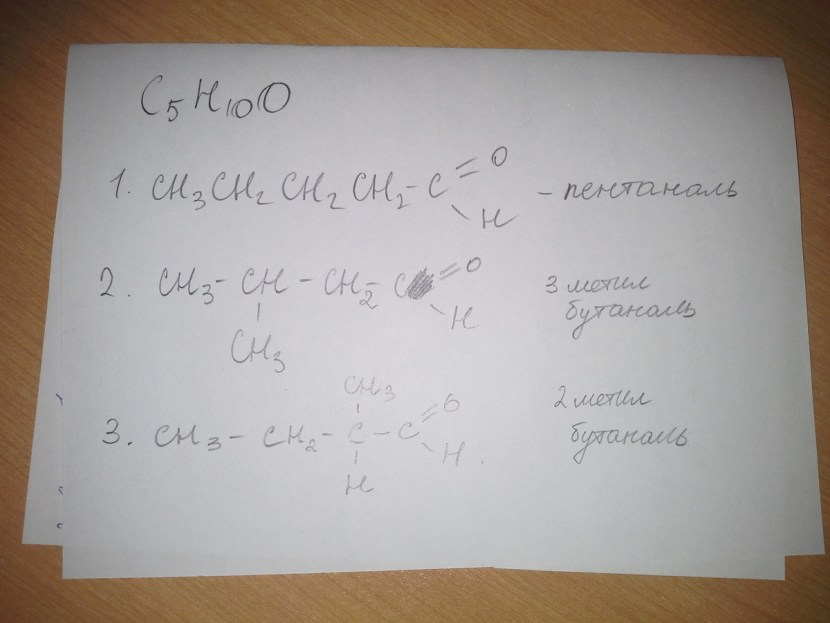 C₅H₁₀O
1. CH₃CH₂CH₂CH₂-C=O
H
- пентаналь
2. CH₃-CH-CH₂-C=O
H
CH₃
3 метил
бутаналь
CH₃
3. CH₃-CH₂-C-C=O
H
H.
2 метил
бутаналь